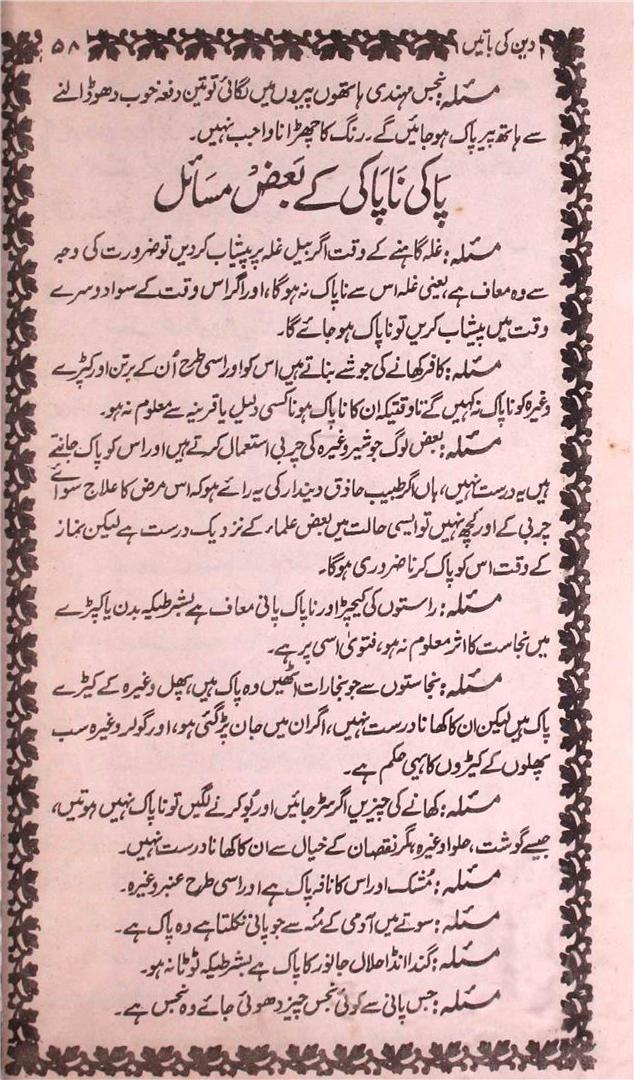 دین کی باتیں ۵۸
مسئلہ: نجس مہندی ہاتھوں پیروں میں لگائی تو تین دفعہ خوب دھو ڈالنے
سے ہاتھ پیر پاک ہو جائیں گے۔ رنگ کا چھڑانا واجب نہیں۔
پاکی ناپاکی کے بعض مسائل
مسئلہ: غلہ گاہنے کے وقت اگر بیل غلہ پر پیشاب کر دیں تو ضرورت کی وجہ
سے وہ معاف ہے، یعنی غلہ اس سے ناپاک نہ ہوگا، اور اگر اس وقت کے سوا دوسرے
وقت میں پیشاب کریں تو ناپاک ہو جائے گا۔
مسئلہ: کافر کھانے کی جو شے بناتے ہیں اس کو اور اسی طرح اُن کے برتن اور کپڑے
وغیرہ کو ناپاک نہ کہیں گے تاوقتیکہ ان کا ناپاک ہونا کسی دلیل یا قرینہ سے معلوم نہ ہو۔
مسئلہ: بعض لوگ جو شیر وغیرہ کی چربی استعمال کرتے ہیں اور اس کو پاک جانتے
ہیں یہ درست نہیں، ہاں اگر طبیب حاذق دیندار کی یہ رائے ہو کہ اس مرض کا علاج سوائے
چربی کے اور کچھ نہیں تو ایسی حالت میں بعض علماء کے نزدیک درست ہے لیکن نماز
کے وقت اس کو پاک کرنا ضروری ہوگا۔
مسئلہ: راستوں کی کیچڑ اور ناپاک پانی معاف ہے بشرطیکہ بدن یا کپڑے
میں نجاست کا اثر معلوم نہ ہو، فتویٰ اسی پر ہے۔
مسئلہ: نجاستوں سے جو بخارات اٹھیں وہ پاک ہیں، پھل وغیرہ کے کیڑے
پاک ہیں لیکن ان کا کھانا درست نہیں، اگر ان میں جان پڑ گئی ہو، اور گولر وغیرہ سب
پھلوں کے کیڑوں کا یہی حکم ہے۔
مسئلہ: کھانے کی چیزیں اگر سڑ جائیں اور بُو کرنے لگیں تو ناپاک نہیں ہوتیں،
جیسے گوشت، حلوا وغیرہ، مگر نقصان کے خیال سے ان کا کھانا درست نہیں۔
مسئلہ: مُشک اور اس کا نافہ پاک ہے اور اسی طرح عنبر وغیرہ۔
مسئلہ: سوتے میں آدمی کے مُنہ سے جو پانی نکلتا ہے وہ پاک ہے۔
مسئلہ: گندا انڈا حلال جانور کا پاک ہے بشرطیکہ ٹوٹا نہ ہو۔
مسئلہ: جس پانی سے کوئی نجس چیز دھوئی جائے وہ نجس ہے۔